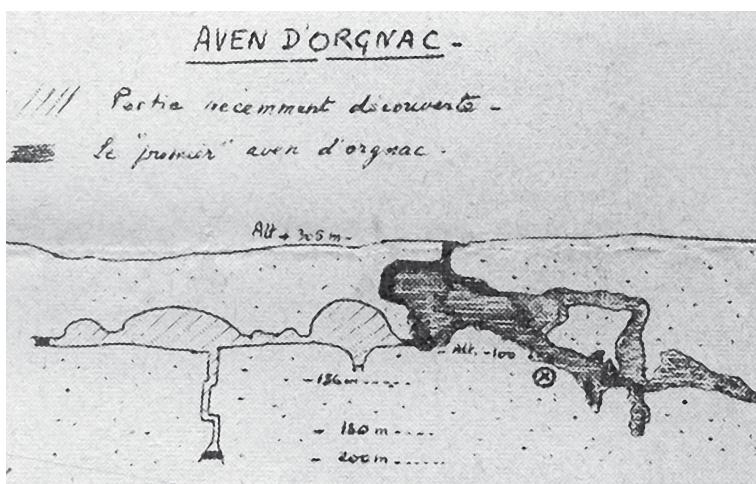 AVEN D'ORGNAC -
Partie récemment découverte -
Le "premier" aven d'orgnac.
Alt + 305 m -
Alt. -100
- 136m
- 180 m
- 200m